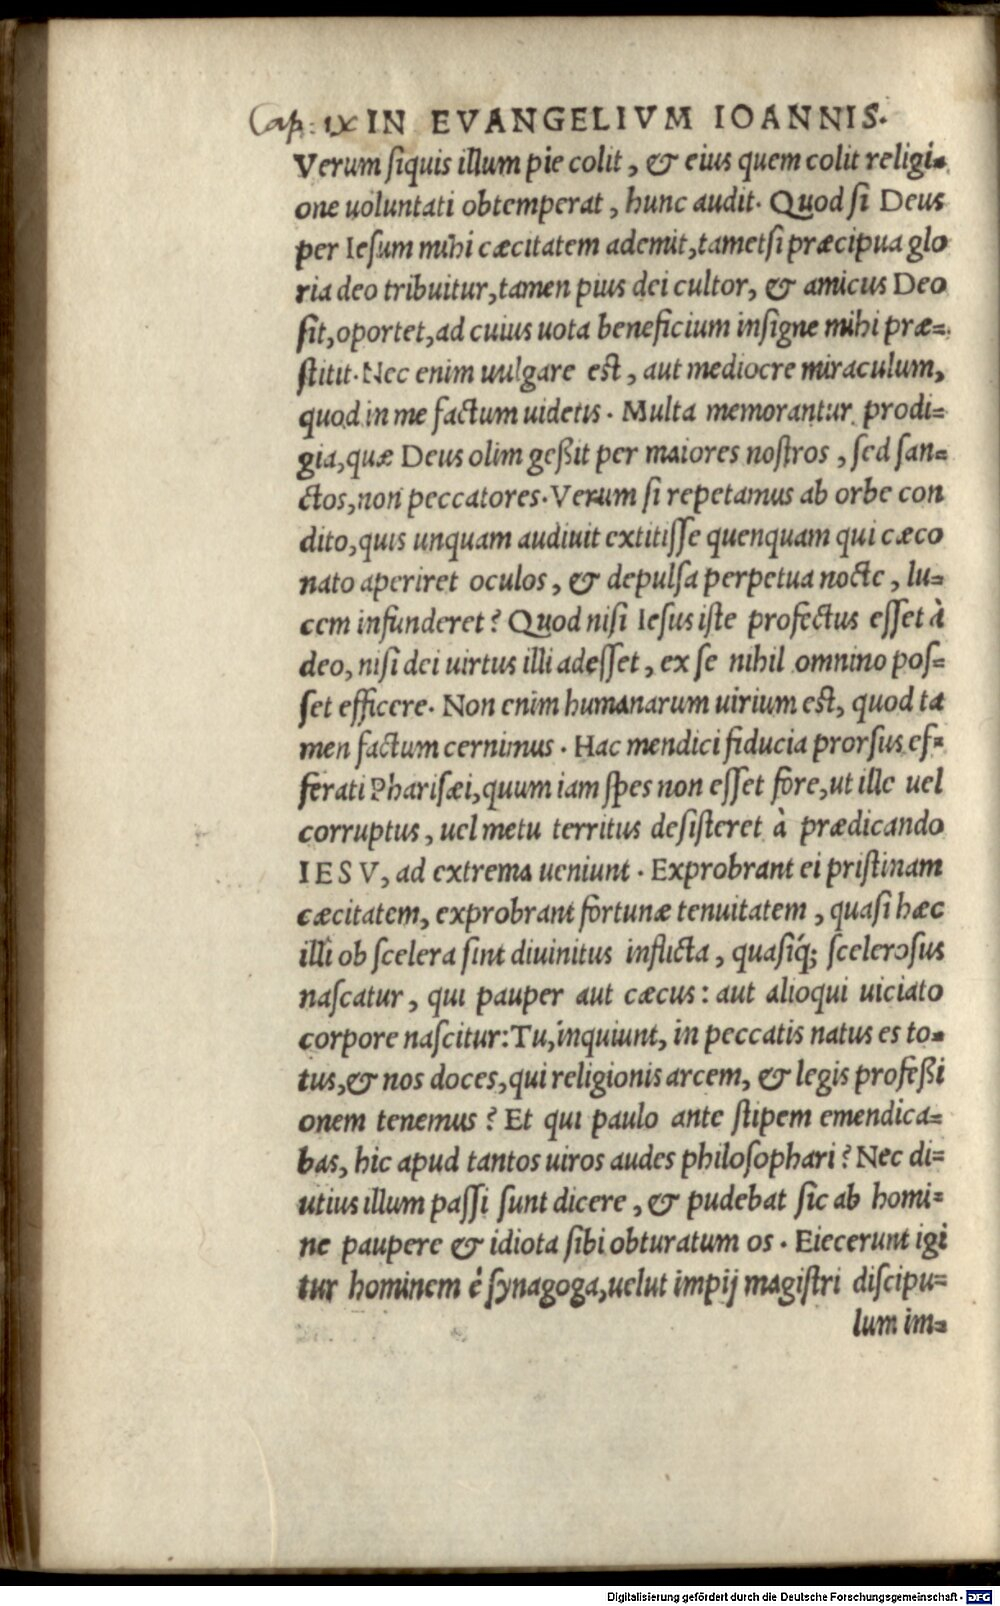 Cap: IX IN EVANGELIVM IOANNIS.
Verum ſiquis illum pie colit, & eius quem colit religi-
one uoluntati obtemperat, hunc audit. Quod ſi Deus
per Ieſum mihi cæcitatem ademit, tametſi præcipua glo
ria deo tribuitur, tamen pius dei cultor, & amicus Deo
ſit, oportet, ad cuius uota beneficium inſigne mihi præ=
ſtitit. Nec enim uulgare eſt, aut mediocre miraculum,
quod in me factum uidetis. Multa memorantur prodi=
gia, quæ Deus olim geßit per maiores noſtros, ſed ſan=
ctos, non peccatores. Verum ſi repetamus ab orbe con
dito, quis unquam audiuit extitiſſe quenquam qui cæco
nato aperiret oculos, & depulſa perpetua nocte, lu=
cem infunderet? Quod niſi Ieſus iſte profectus eſſet à
deo, niſi dei uirtus illi adeſſet, ex ſe nihil omnino poſ=
ſet efficere. Non enim humanarum uirium eſt, quod ta
men factum cernimus. Hac mendici fiducia prorſus ef=
ferati Phariſæi, quum iam ſpes non eſſet fore, ut ille uel
corruptus, uel metu territus deſiſteret à prædicando
IESV, ad extrema ueniunt. Exprobrant ei priſtinam
cæcitatem, exprobrant fortunæ tenuitatem, quaſi hæc
illi ob ſcelera ſint diuinitus inflicta, quaſiq́; ſceleroſus
naſcatur, qui pauper aut cæcus: aut alioqui uiciato
corpore naſcitur: Tu, inquiunt, in peccatis natus es to=
tus, & nos doces, qui religionis arcem, & legis profeßi
onem tenemus? Et qui paulo ante ſtipem emendica=
bas, hic apud tantos uiros audes philoſophari? Nec di=
utius illum paſſi ſunt dicere, & pudebat ſic ab homi=
ne paupere & idiota ſibi obturatum os. Eiecerunt igi
tur hominem è ſynagoga, uelut impij magiſtri diſcipu=
lum im=
Digitalisierung gefördert durch die Deutsche Forschungsgemeinschaft - DFG